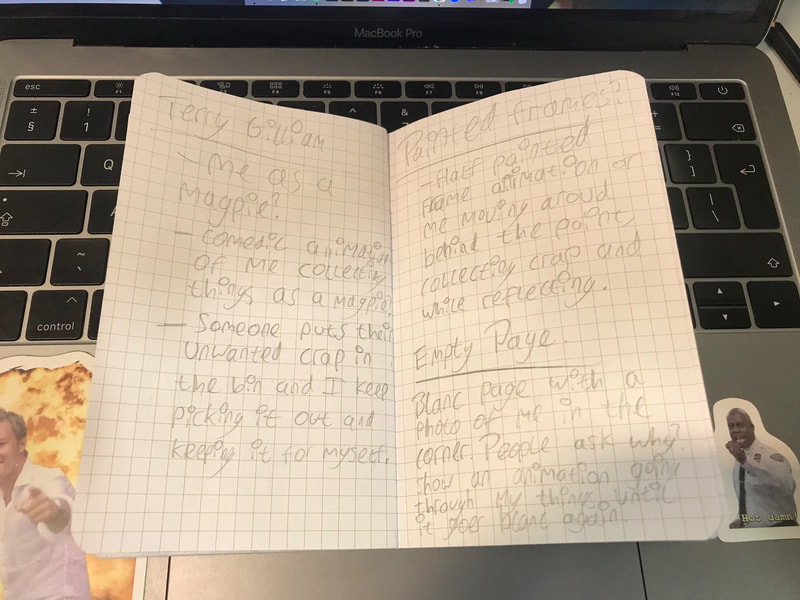 MacBook Pro
esc
±
§
!
1
Q
control
}
]
|
\
Terry Gilliam
- Me as a
Magpie?
- Comedic animation
of me collecting
things as a magpie.
- Someone puts their
unwanted crap in
the bin and I keep
picking it out and
keeping it for myself.
Painted frames?
- Half painted
frame animation or
me moving aroud
behind the paint,
collecting crap and
while reflecting.
Empty Page.
Blanc page with a
photo of me in the
corner. People ask why?
Show an animation going
through my things until
it goes blanc again.
Hot damn!